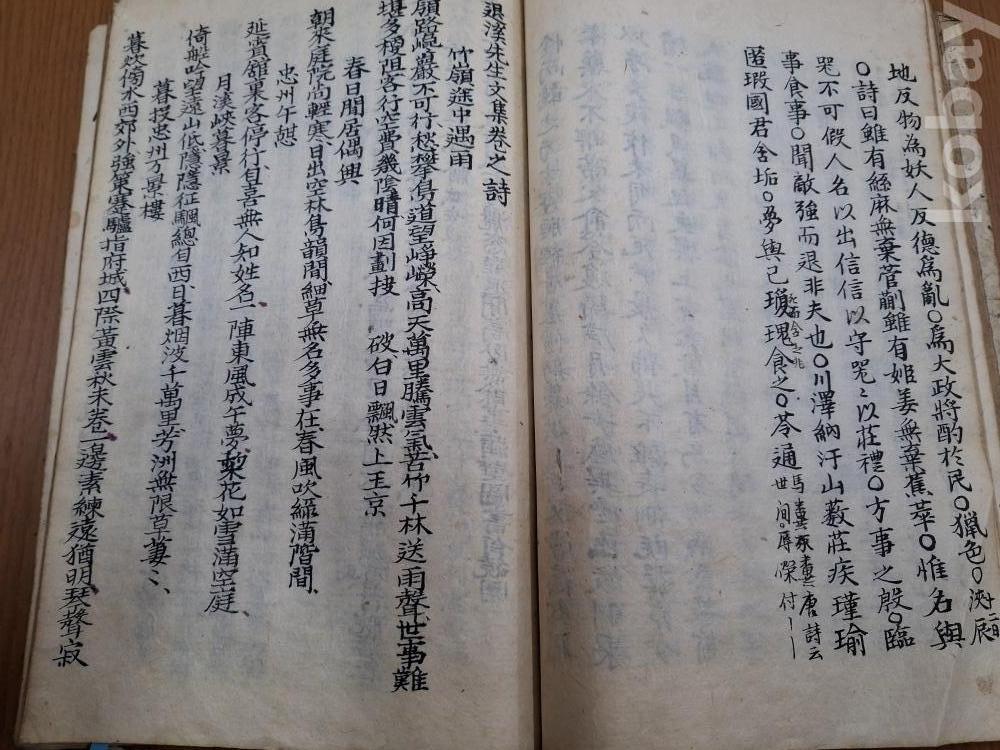 地反物為妖人反德為亂○為大政將酌於民○獵色○浹辰十二日
○詩曰雖有絲麻無棄菅蒯雖有姬姜無棄蕉萃○惟名與
器不可假人名以出信信以守器〻以莊禮○方事之殷○臨
事食事○聞敵強而退非夫也○川澤納汙山藪莊疾瑾瑜
匿瑕國君舍垢○夢與已瓊瑰食之○荅通
退溪先生文集卷之詩
竹嶺途中遇雨
嶺路崎嶇巖不可行愁攀鳥道望崢嶸高天萬里騰雲氣苦竹千林送雨聲世事難
堪多梗阻客行空費幾陰晴何因劃破白日飄然上王京
春日閒居偶興
朝來庭院尚輕寒日出空林鳥韻閒細草無名多事在春風吹綠滿階間
忠州午憇
延賓舘裏客停行自喜無人知姓名一陣東風成午夢梨花如雪滿空庭
月溪峽暮景
倚船吟望遠山低隱隱征颿總自西日暮烟波千萬里芳洲無限草萋〻
暮投忠州可景樓
暮炊傍水西郊外強策蹇驢指府城四際黃雲秋未卷一邊素練遠猶明琴聲寂
kobay